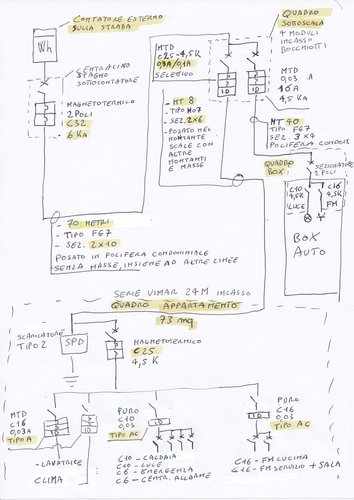 CONTATORE ESTERNO
SULLA STRADA
Wh
CENTRALINO
STAGNO
SOTTOCONTATORE
MAGNETOTERMICO
2 POLI
C32
6 KA
MTD
C25-4,5K
0,3A/0,1A
SELETTIVO
QUADRO
SOTTOSCALA
4 MODULI
INCASSO
BOCCHIOTTI
ID
ID
MTD
0,03 A
16 A
4,5 KA
- MT 8
- TIPO NO7
- SEZ. 2x6
- POSATO NEL
MONTANTE
SCALE CON
ALTRE
MONTANTI
E MASSE
MT 40
TIPO FG7
SEZ. 3x4
POLIFERA CONDOM
QUADRO
BOX
SEZIONATORE
2 POLI
C10
4,5K
LUCE
C16
4,5K
FM
BOX
AUTO
- 70 METRI
- TIPO FG7
- SEZ. 2x10
POSATO IN POLIFERA CONDOMINIALE
SENZA MASSE, INSIEME AD ALTRE LINEE
SERIE VIMAR 24M INCASSO
QUADRO APPARTAMENTO
73 mq
SCARICATORE
TIPO 2
SPD
MAGNETOTERMICO
C25
4,5K
MTD
C16
0,03A
TIPO A
ID
- LAVATRICE
CLIMA
PURO
C10
0,03
TIPO AC
ID
C10 - CALDAIA
C10 - LUCE
C6 - EMERGENZA
C6 - CENTR. ALLARME
PURO
C16
0,03
TIPO AC
ID
C16 - FM CUCINA
C16 - FM SERVIZIO + SALA